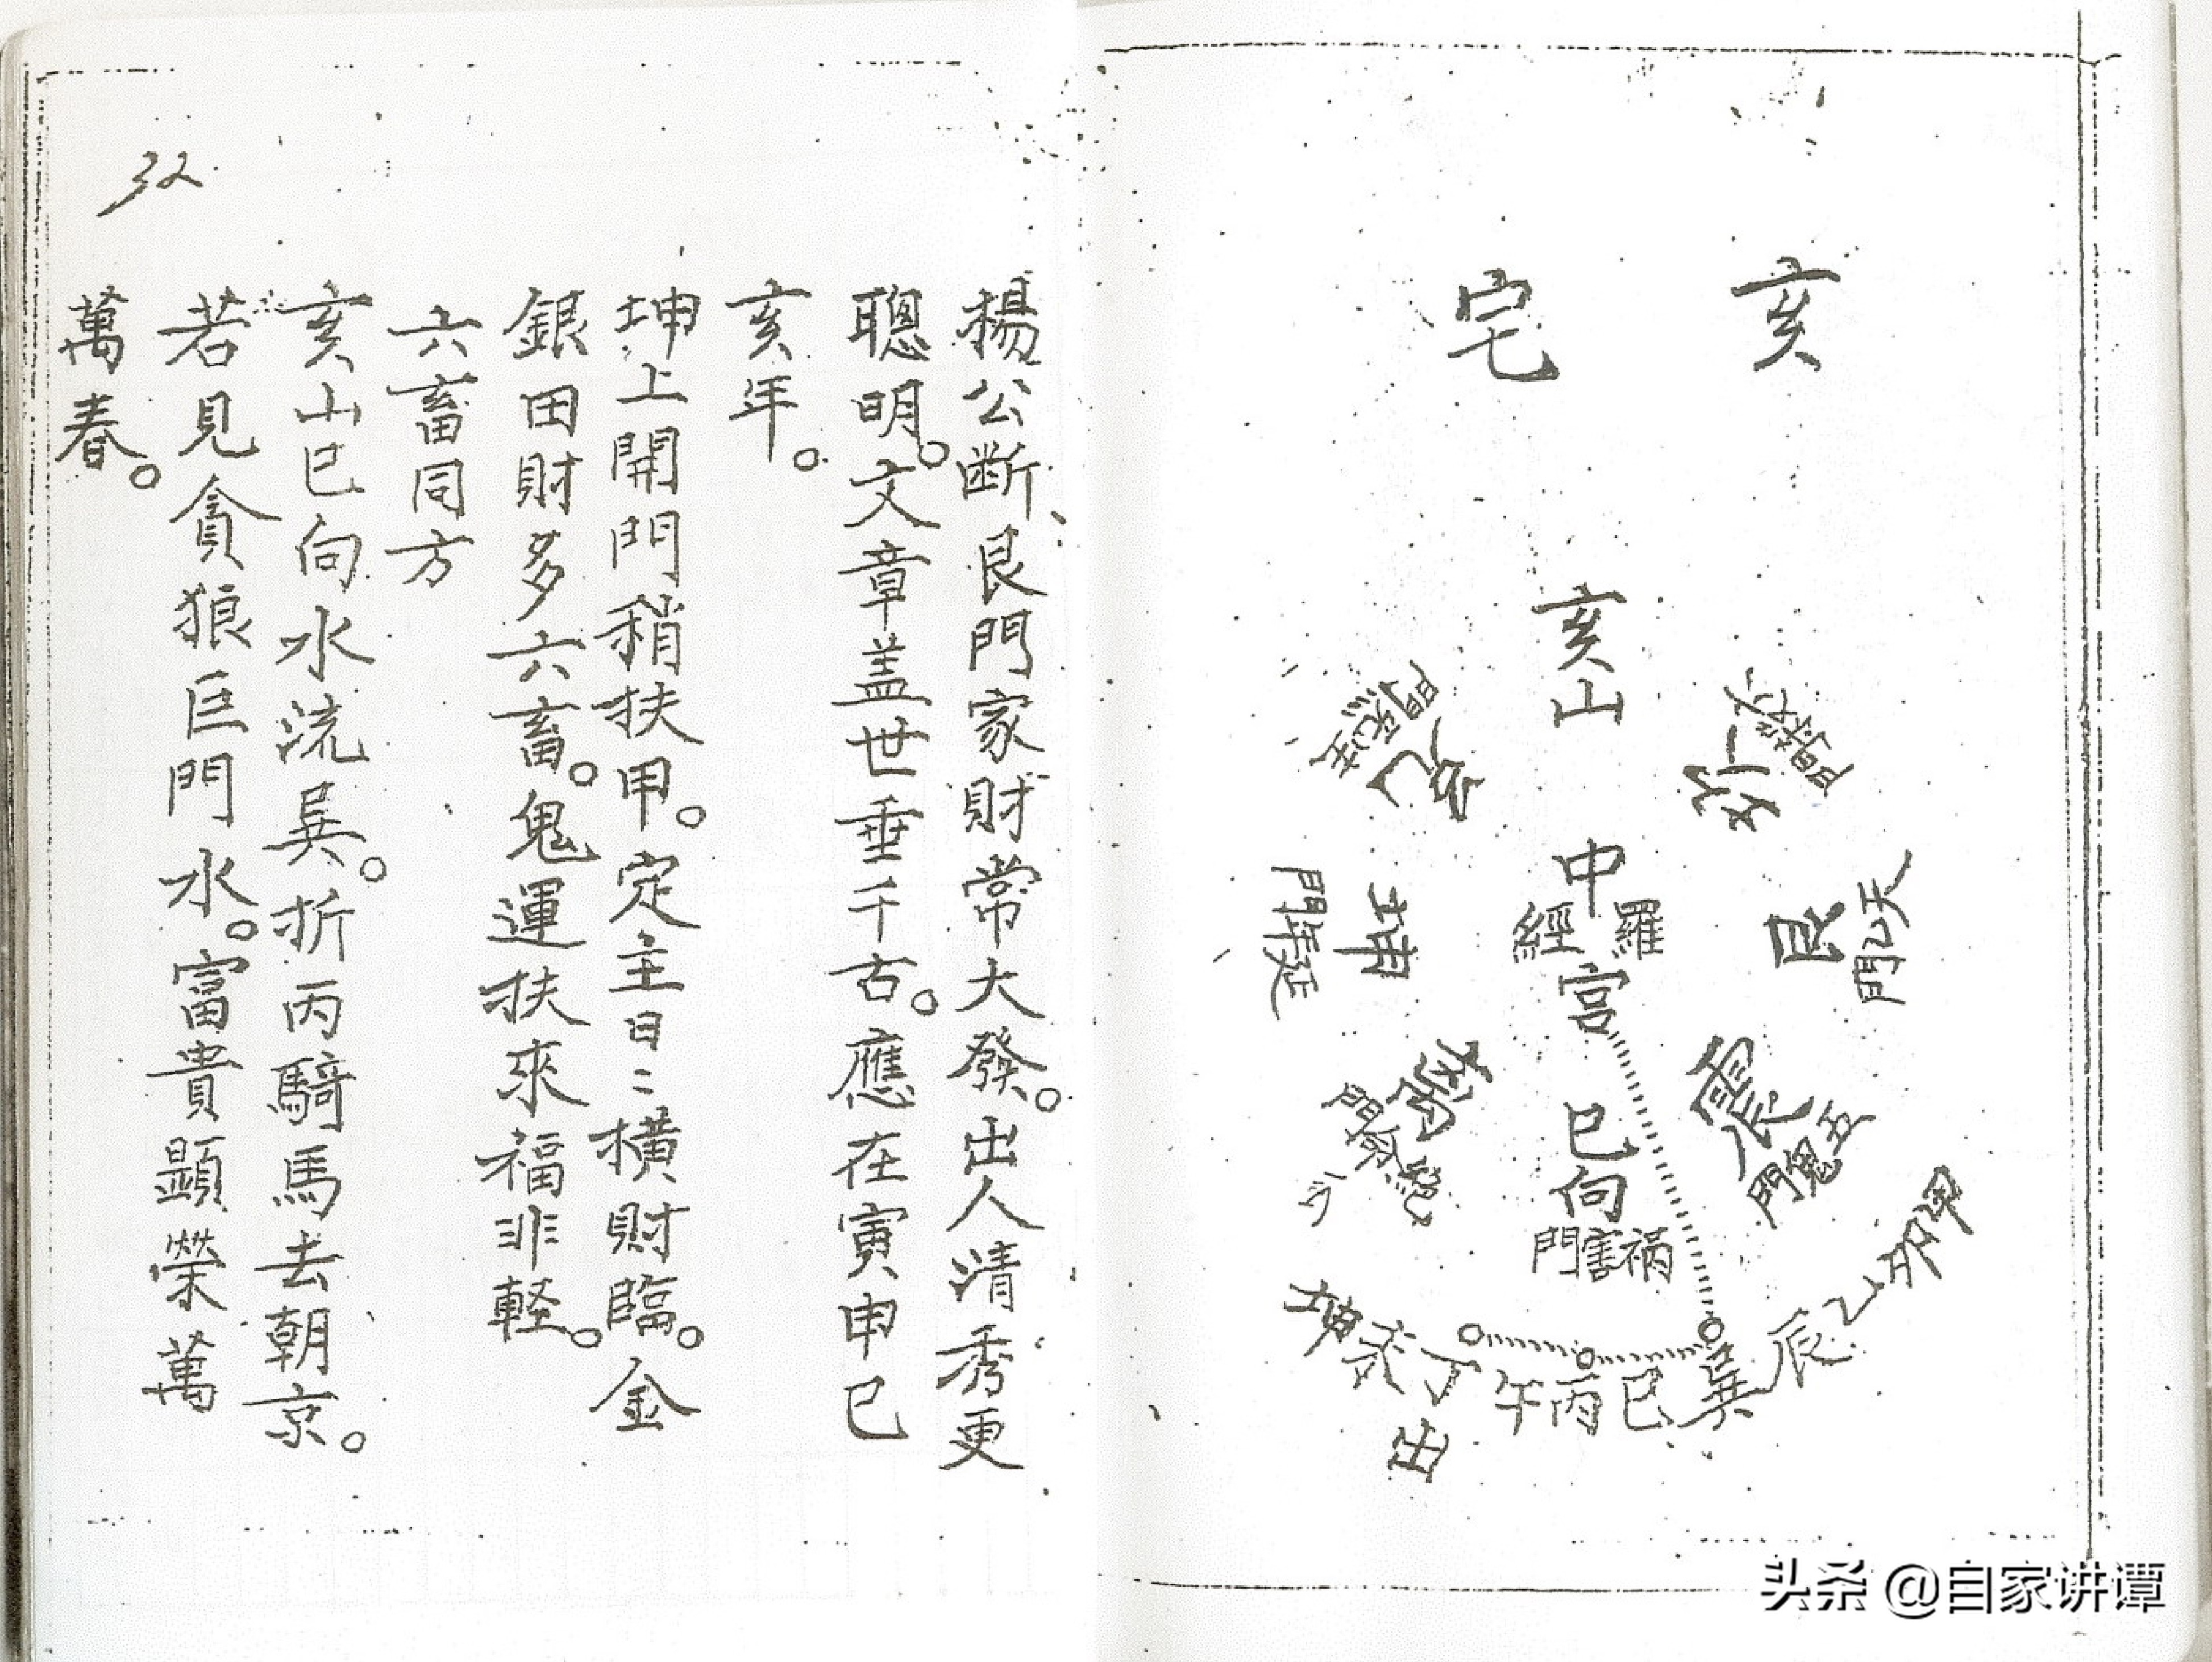 亥宅
亥山
兌
門
坎
門
艮
天乙門
中宮
羅經
坤
延年門
震
五鬼門
離
門
巳向
禍害門
甲卯乙辰巽巳丙午丁未坤
出
楊公断、艮門家財常大發。出人清秀更
聰明。文章盖世垂千古。應在寅申巳
亥年。
坤上開門稍扶甲。定主日〻橫財臨。金
銀田財多六畜。鬼運扶來福非軽。
六畜同方
亥山巳向水流巽。折丙騎馬去朝京。
若見貪狼巨門水。富貴顕榮萬
萬春。
32
头条 @自家讲谭